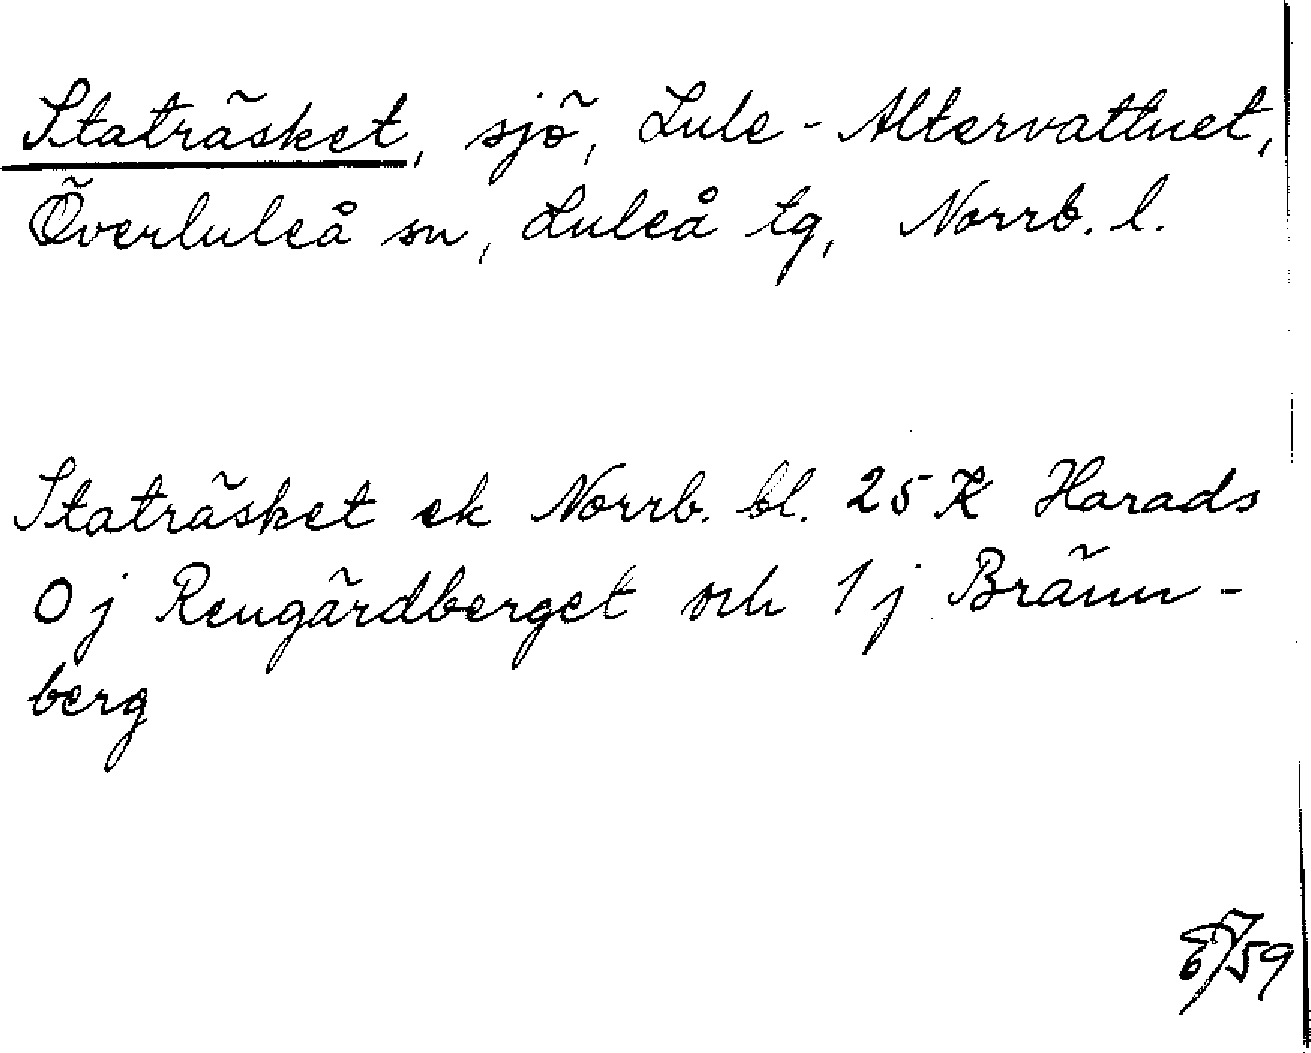 Staträsket, sjö, Lule-Altervattnet,
Överluleå sn, Luleå tg, Norrb. l.
Staträsket ek Norrb. bl. 25 K Harads
0 j Rengärdberget och 1 j Bränn-
berg
59